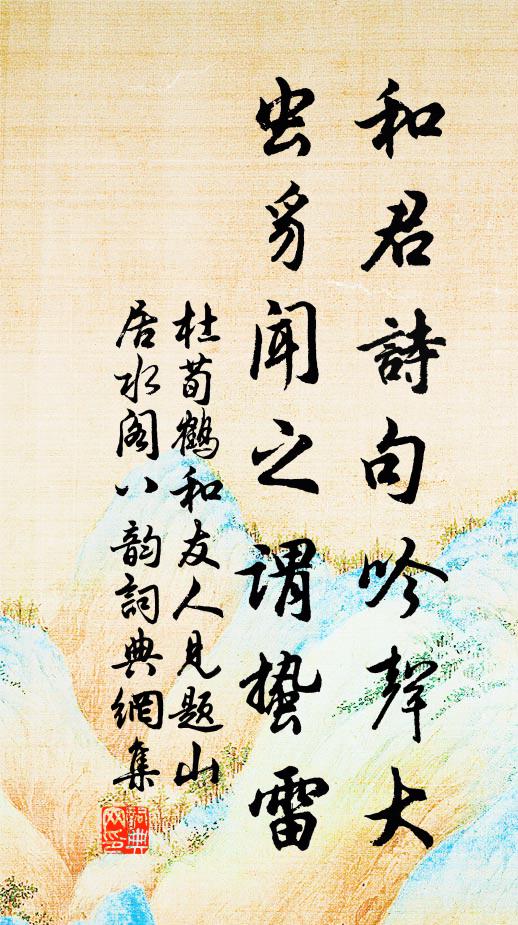 和君詩句吟聲大
虫豸聞之謂蟄雷
杜荀鶴和友人見題山
居水阁八韵詞典網集
詞典
网印